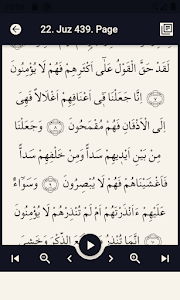 22. Juz 439. Page
لَقَدْ حَقَّ الْقَوْلُ عَلٰٓى اَكْثَرِهِمْ فَهُمْ لَا يُؤْمِنُونَ
﴿٧﴾ اِنَّا جَعَلْنَا فٖٓى اَعْنَاقِهِمْ اَغْلَالًا فَهِىَ
اِلَى الْاَذْقَانِ فَهُمْ مُقْمَحُونَ ﴿٨﴾ وَجَعَلْنَا
مِنْ بَيْنِ اَيْدٖيهِمْ سَدًّا وَمِنْ خَلْفِهِمْ سَدًّا
فَاَغْشَيْنَاهُمْ فَهُمْ لَا يُبْصِرُونَ ﴿٩﴾ وَسَوَٓاءٌ
عَلَيْهِمْ ءَاَنْذَرْتَهُمْ اَمْ لَمْ تُنْذِرْهُمْ لَا يُؤْمِنُونَ
﴿١٠﴾ اِنَّمَا تُنْذِرُ الذِّكْرَ وَخَشِىَ